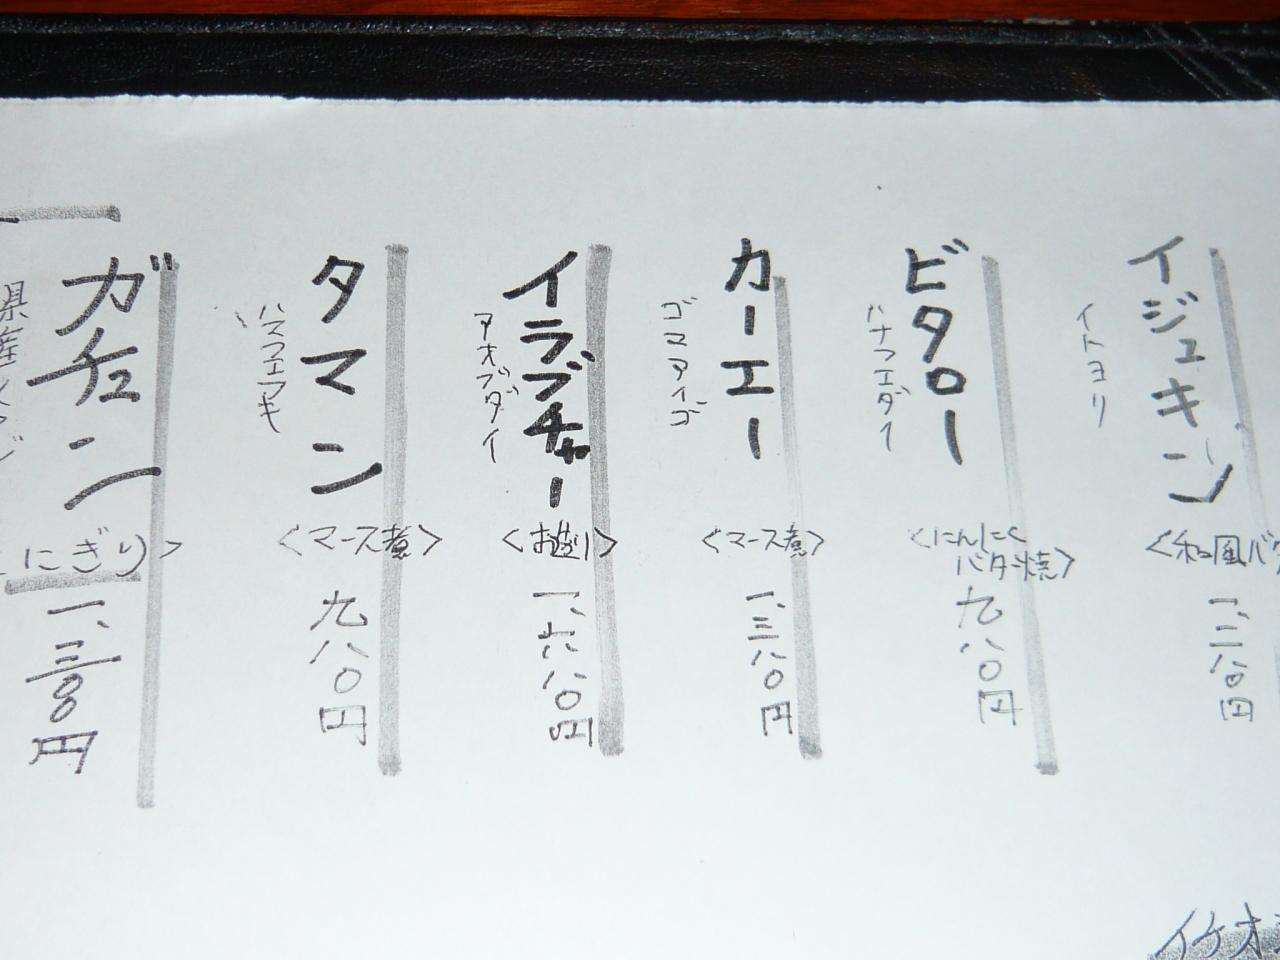 イジュキン
イトヨリ
<和風バタ
一、二八〇円
ビタロー
ハナフエダイ
<にんにく
バター焼>
九八〇円
カーエー
ゴマアイゴ
<マース煮>
一、三八〇円
イラブチャー
アオブダイ
<お造り>
一、六八〇円
タマン
ハマフエフキ
<マース煮>
九八〇円
ガチュン
にぎり>
一、三八〇円
県産
イケオ